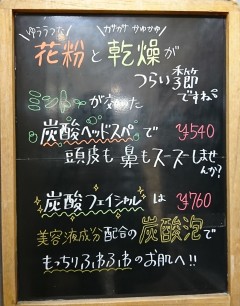 ゆううつな カサカサ かゆかゆ
花粉と乾燥が
つらい季節
ですね。
が入った
炭酸ヘッドスパで ¥540
頭皮も鼻もスースーしませ
んか?
炭酸フェイシャルは ¥760
美容液成分配合の炭酸泡で
もっちりふわふわのお肌へ!!